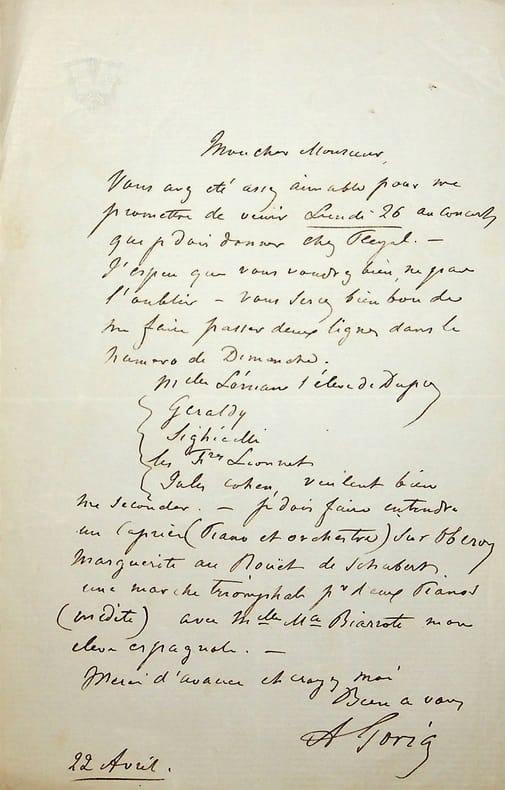 Mon cher Monsieur,
Vous avez été assez aimable pour me
promettre de venir Lundi 26 au concert
que je dois donner chez Pleyel. —
J'espère que vous voudrez bien ne pas
l'oublier — vous serez bien bon de
me faire passer deux lignes dans le
numero de Dimanche.
Melle l'élève de Duprez
Geraldy
Sighicelli
les Fres Lionnet
Jules Cohen, veulent bien
me seconder. — je dois faire entendre
un Caprice (Piano et orchestre) sur Oberon
Marguerite au Rouët de Schubert
une marche triomphale pr deux Pianos
(inédite) avec Melle Ma mon
élève espagnole. —
Merci d'avance et croyez moi
Bien a vous
A Goria
22 Avril.